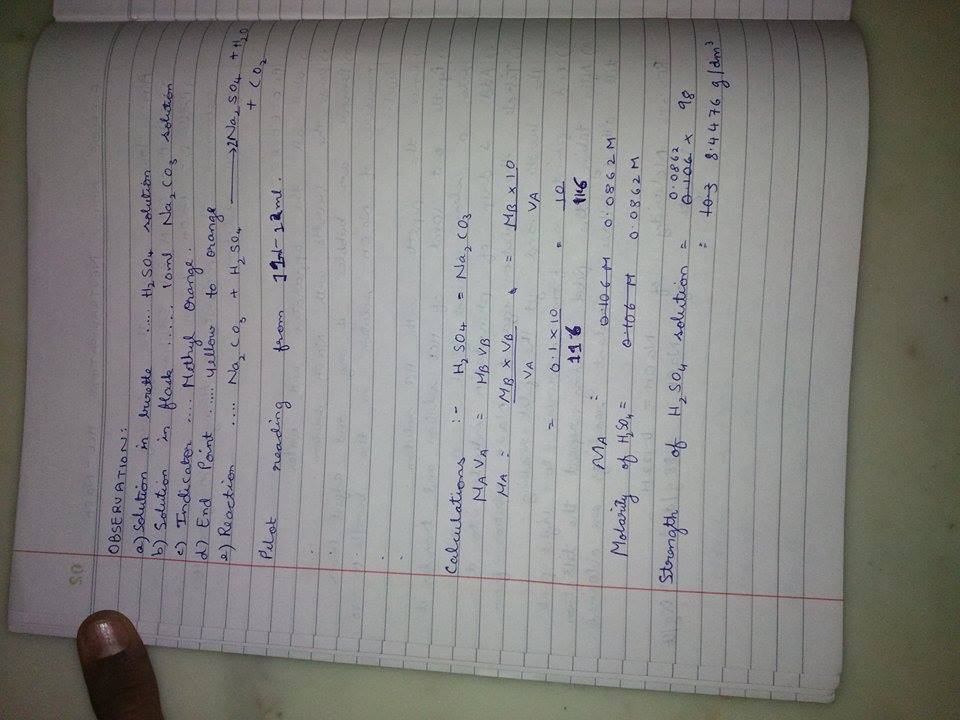 OBSERVATION:
a) Solution in burette .... H2SO4 solution
b) Solution in flask ..... 10ml Na2CO3 solution
c) Indicator .... Methyl Orange.
d) End Point ..... yellow to orange
e) Reaction .... Na2CO3 + H2SO4 ⟶ Na2SO4 + H2O
+ CO2
Pilot reading from 11ml-12ml.
Calculations :- H2SO4 = Na2CO3
MAVA = MBVB
MA = MB x VB / VA = MB x 10 / VA
= 0.1 x 10 / 11.6 = 10 / 116
MA = 0.106 M 0.0862 M
Molarity of H2SO4 = 0.106 M 0.0862 M
Strength of H2SO4 solution = 0.106 0.0862 x 98
= 10.3 8.4476 g/dm3